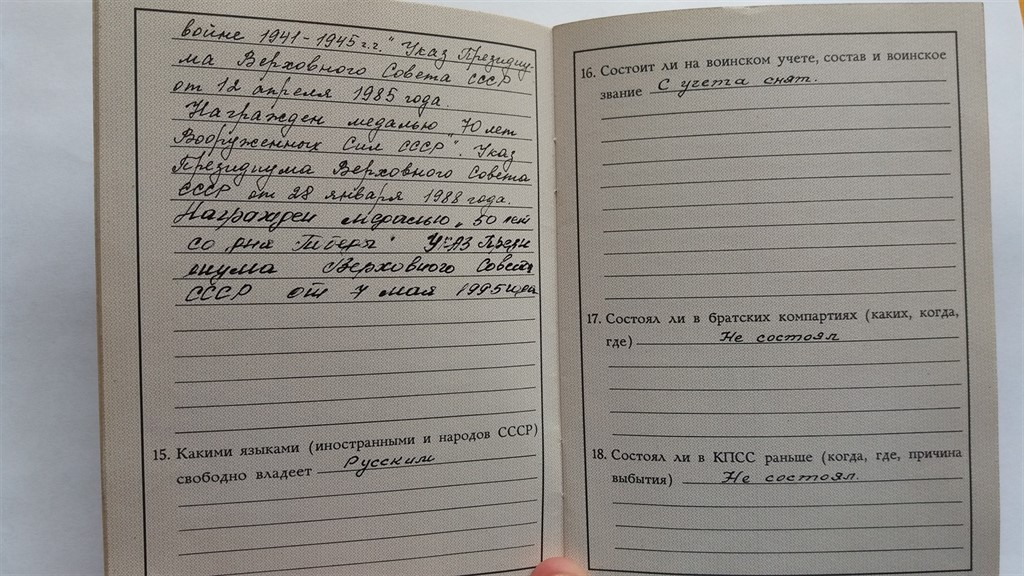 войне 1941-1945 г.г." Указ Президиу-
ма Верховного Совета СССР
от 12 апреля 1985 года.
Награжден медалью „70 лет
Вооруженных Сил СССР". Указ
Президиума Верховного Совета
СССР от 28 января 1988 года.
Награжден медалью „50 лет
со дня
Верховного Совета
СССР от 7 мая 1995 года
15. Какими языками (иностранными и народов СССР)
свободно владеет Русским
16. Состоит ли на воинском учете, состав и воинское
звание С учета снят.
17. Состоял ли в братских компартиях (каких, когда,
где) Не состоял
18. Состоял ли в КПСС раньше (когда, где, причина
выбытия) Не состоял.